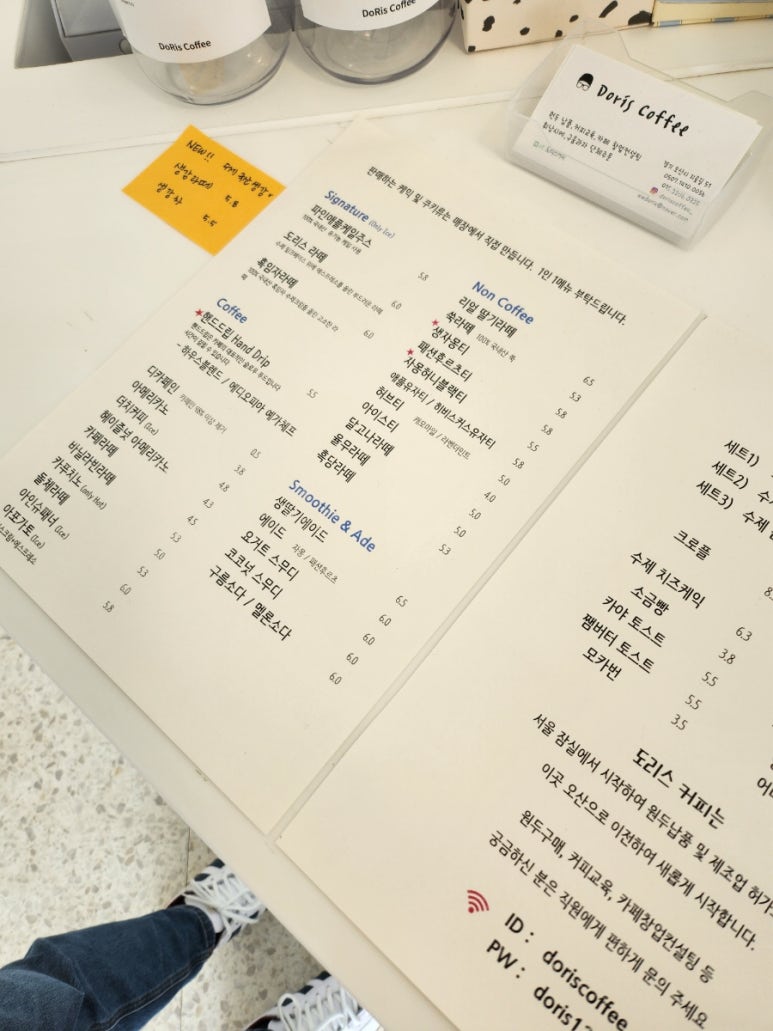 DoRis Coffee
DoRis Coffee
Doris Coffee
원두 납품, 커피교육, 카페 창업컨설팅
경기 오산시 외삼미로
NEW!!
생강라떼 5.8
생강차 5.5
판매하는 케익 및 쿠키류는 매장에서 직접 만듭니다. 1인 1메뉴 부탁드립니다.
Signature (Only Ice)
파인애플케일주소 5.8
도리스 라떼 6.0
흑임자라떼 6.0
Coffee
핸드드립 Hand Drip 5.5
핸드드립은 카페의 대표적인 슬로우 푸드입니다
시간이 걸릴 수 있습니다
- 하우스블렌드 / 에디오피아 예가체프
디카페인 카페인 98% 이상 제거 0.5
아메리카노 3.8
더치커피 (Ice) 4.8
헤이즐넛 아메리카노 4.3
카페라떼 4.5
바닐라빈라떼 5.3
카푸치노 (only Hot) 5.0
돌체라떼 5.3
아인슈패너 (Ice) 6.0
아포가토 (Ice) 5.8
Non Coffee
리얼 딸기라떼 6.5
쑥라떼 100% 국내산 쑥 5.3
생자몽티 5.8
패션후르츠티 5.8
자몽허니블랙티 5.5
애플유자티 / 히비스커스유자티 5.8
허브티 캐모마일 / 라벤더민트 5.0
아이스티 4.0
달고나라떼 5.0
율무라떼 5.0
흑당라떼 5.3
Smoothie & Ade
생딸기에이드 6.5
에이드 자몽 / 패션후르츠 6.0
요거트 스무디 6.0
코코넛 스무디 6.0
구름소다 / 멜론소다 6.0
세트1)
세트2) 수
세트3) 수제
크로플
수제 치즈케익 6.3
소금빵 3.8
카야 토스트 5.5
쨈버터 토스트 5.5
모카번 3.5
도리스 커피는
서울 잠실에서 시작하여 원두납품 및 제조업 허가
이곳 오산으로 이전하여 새롭게 시작합니다.
원두구매, 커피교육, 카페창업컨설팅 등
궁금하신 분은 직원에게 편하게 문의 주세요
ID : doriscoffee
PW : doris1